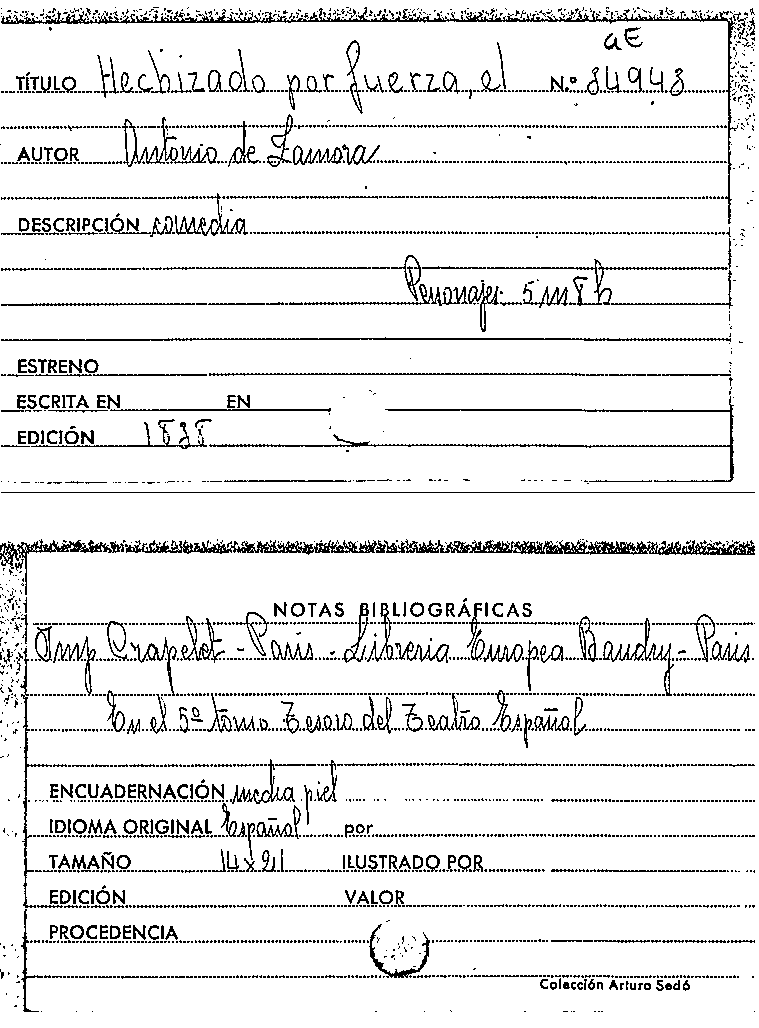 aE
TÍTULO Hechizado por fuerza, el N.º 34943
AUTOR Antonio de Zamora
DESCRIPCIÓN comedia
Personajes: 5 m 8 h
ESTRENO
ESCRITA EN EN
EDICIÓN 1838
NOTAS BIBLIOGRÁFICAS
Imp Crapelet - Paris - Libreria Europea Baudry - Paris
En el 5º tomo Tesoro del Teatro Español
ENCUADERNACIÓN media piel
IDIOMA ORIGINAL Español por
TAMAÑO 14x21 ILUSTRADO POR
EDICIÓN VALOR
PROCEDENCIA
Colección Arturo Sedó